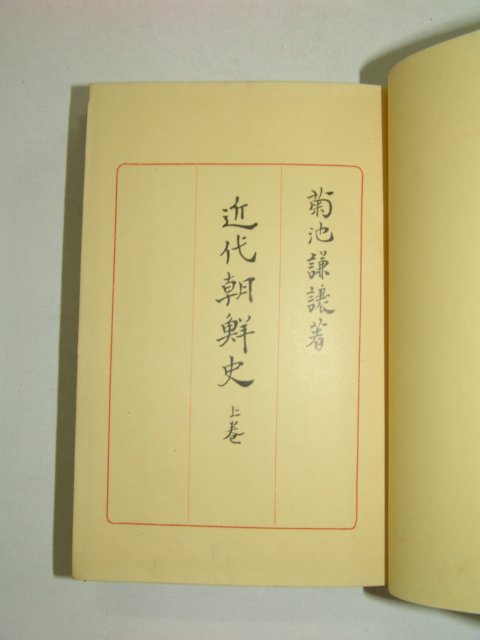 菊池謙譲著
近代朝鮮史 上卷